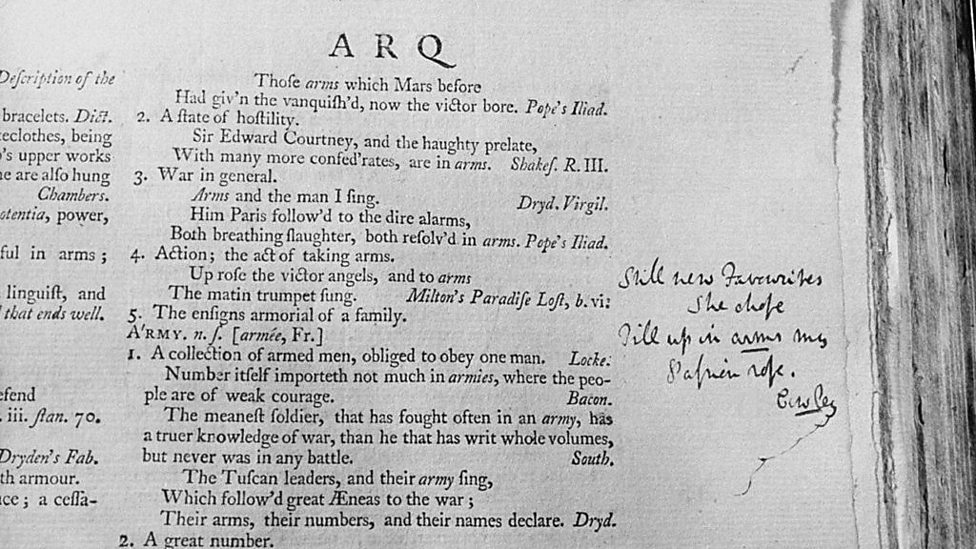 ARQ
Deſcription of the
bracelets. Dict.
eclothes, being
's upper works
are alſo hung
Chambers.
otentia, power,
ful in arms ;
linguiſt, and
that ends well.
efend
iii. ſtan. 70.
Dryden's Fab.
th armour.
ce ; a ceſſa-
Thoſe arms which Mars before
Had giv'n the vanquiſh'd, now the victor bore. Pope's Iliad.
2. A ſtate of hoſtility.
Sir Edward Courtney, and the haughty prelate,
With many more confed'rates, are in arms. Shakeſ. R. III.
3. War in general.
Arms and the man I ſing. Dryd. Virgil.
Him Paris follow'd to the dire alarms,
Both breathing ſlaughter, both reſolv'd in arms. Pope's Iliad.
4. Action; the act of taking arms.
Up roſe the victor angels, and to arms
The matin trumpet ſung. Milton's Paradiſe Loſt, b. vi:
5. The enſigns armorial of a family.
A'RMY. n. ſ. [armée, Fr.]
1. A collection of armed men, obliged to obey one man. Locke.
Number itſelf importeth not much in armies, where the peo-
ple are of weak courage. Bacon.
The meaneſt ſoldier, that has fought often in an army, has
a truer knowledge of war, than he that has writ whole volumes,
but never was in any battle. South.
The Tuſcan leaders, and their army ſing,
Which follow'd great Æneas to the war ;
Their arms, their numbers, and their names declare. Dryd.
2. A great number.
Still new Favourites
She choſe
Till up in arms my
Paſsion roſe.
Cowley